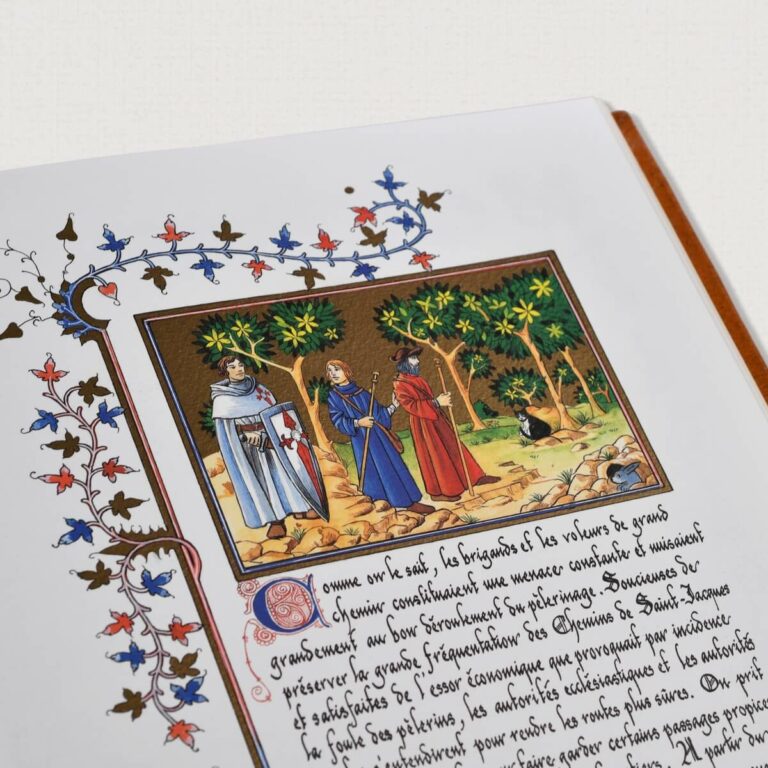 Comme on le sait, les brigands et les voleurs de grand
chemin constituaient une menace constante et nuisaient
grandement au bon déroulement du pèlerinage. Soucieuses de
préserver la grande fréquentation des Chemins de Saint-Jacques
et satisfaites de l'essor économique que provoquait par incidence
la foule des pèlerins, les autorités ecclésiastiques et les autorités
s'entendirent pour rendre les routes plus sûres. On prit
faire garder certains passages propices
A partir du